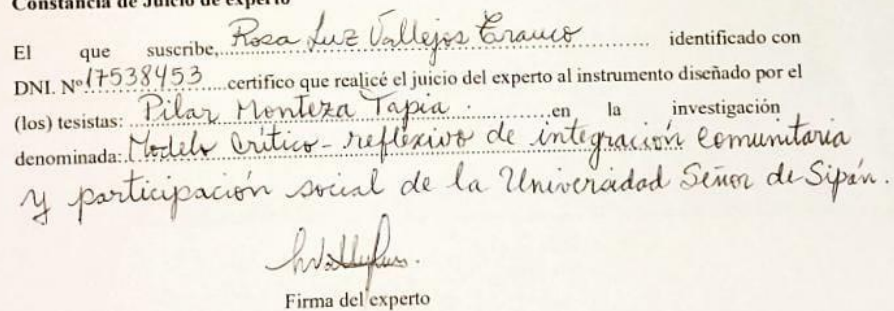 Constancia de Juicio de experto
El que suscribe, Rosa Luz Vallejos Erauco identificado con
DNI. Nº 17538453 certifico que realicé el juicio del experto al instrumento diseñado por el
(los) tesistas: Pilar Monteza Tapia. en la investigación
denominada: Modelo Crítico-reflexivo de integración comunitaria
y participación social de la Universidad Señor de Sipán.
Firma del experto